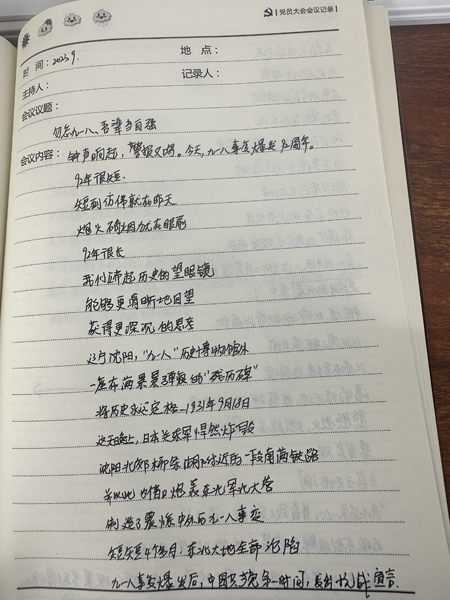 党员大会会议记录
时 间：2023.9.
地 点：
主持人：
记录人：
会议议题：
勿忘九一八、吾辈当自强
会议内容：钟声响起，警报又鸣。今天，九一八事变爆发92周年。
92年很短.
短到仿佛就在昨天
烽火硝烟仍在眼前
92年很长
我们端起历史的望眼镜
能够更清晰地回望
获得更深沉的思考
辽宁沈阳，"九一八"历史博物馆外
一座布满累累弹痕的"残历碑"
将历史永远定格-1931年9月18日
这天晚上，日本关东军悍然炸毁
沈阳北郊柳条湖附近的一段南满铁路
并以此为借口炮轰东北军北大营
制造了震惊中外的九一八事变
短短4个多月，东北大地全部沦陷
九一八事变爆发后，中国共产党第一时间，发出抗战宣言.